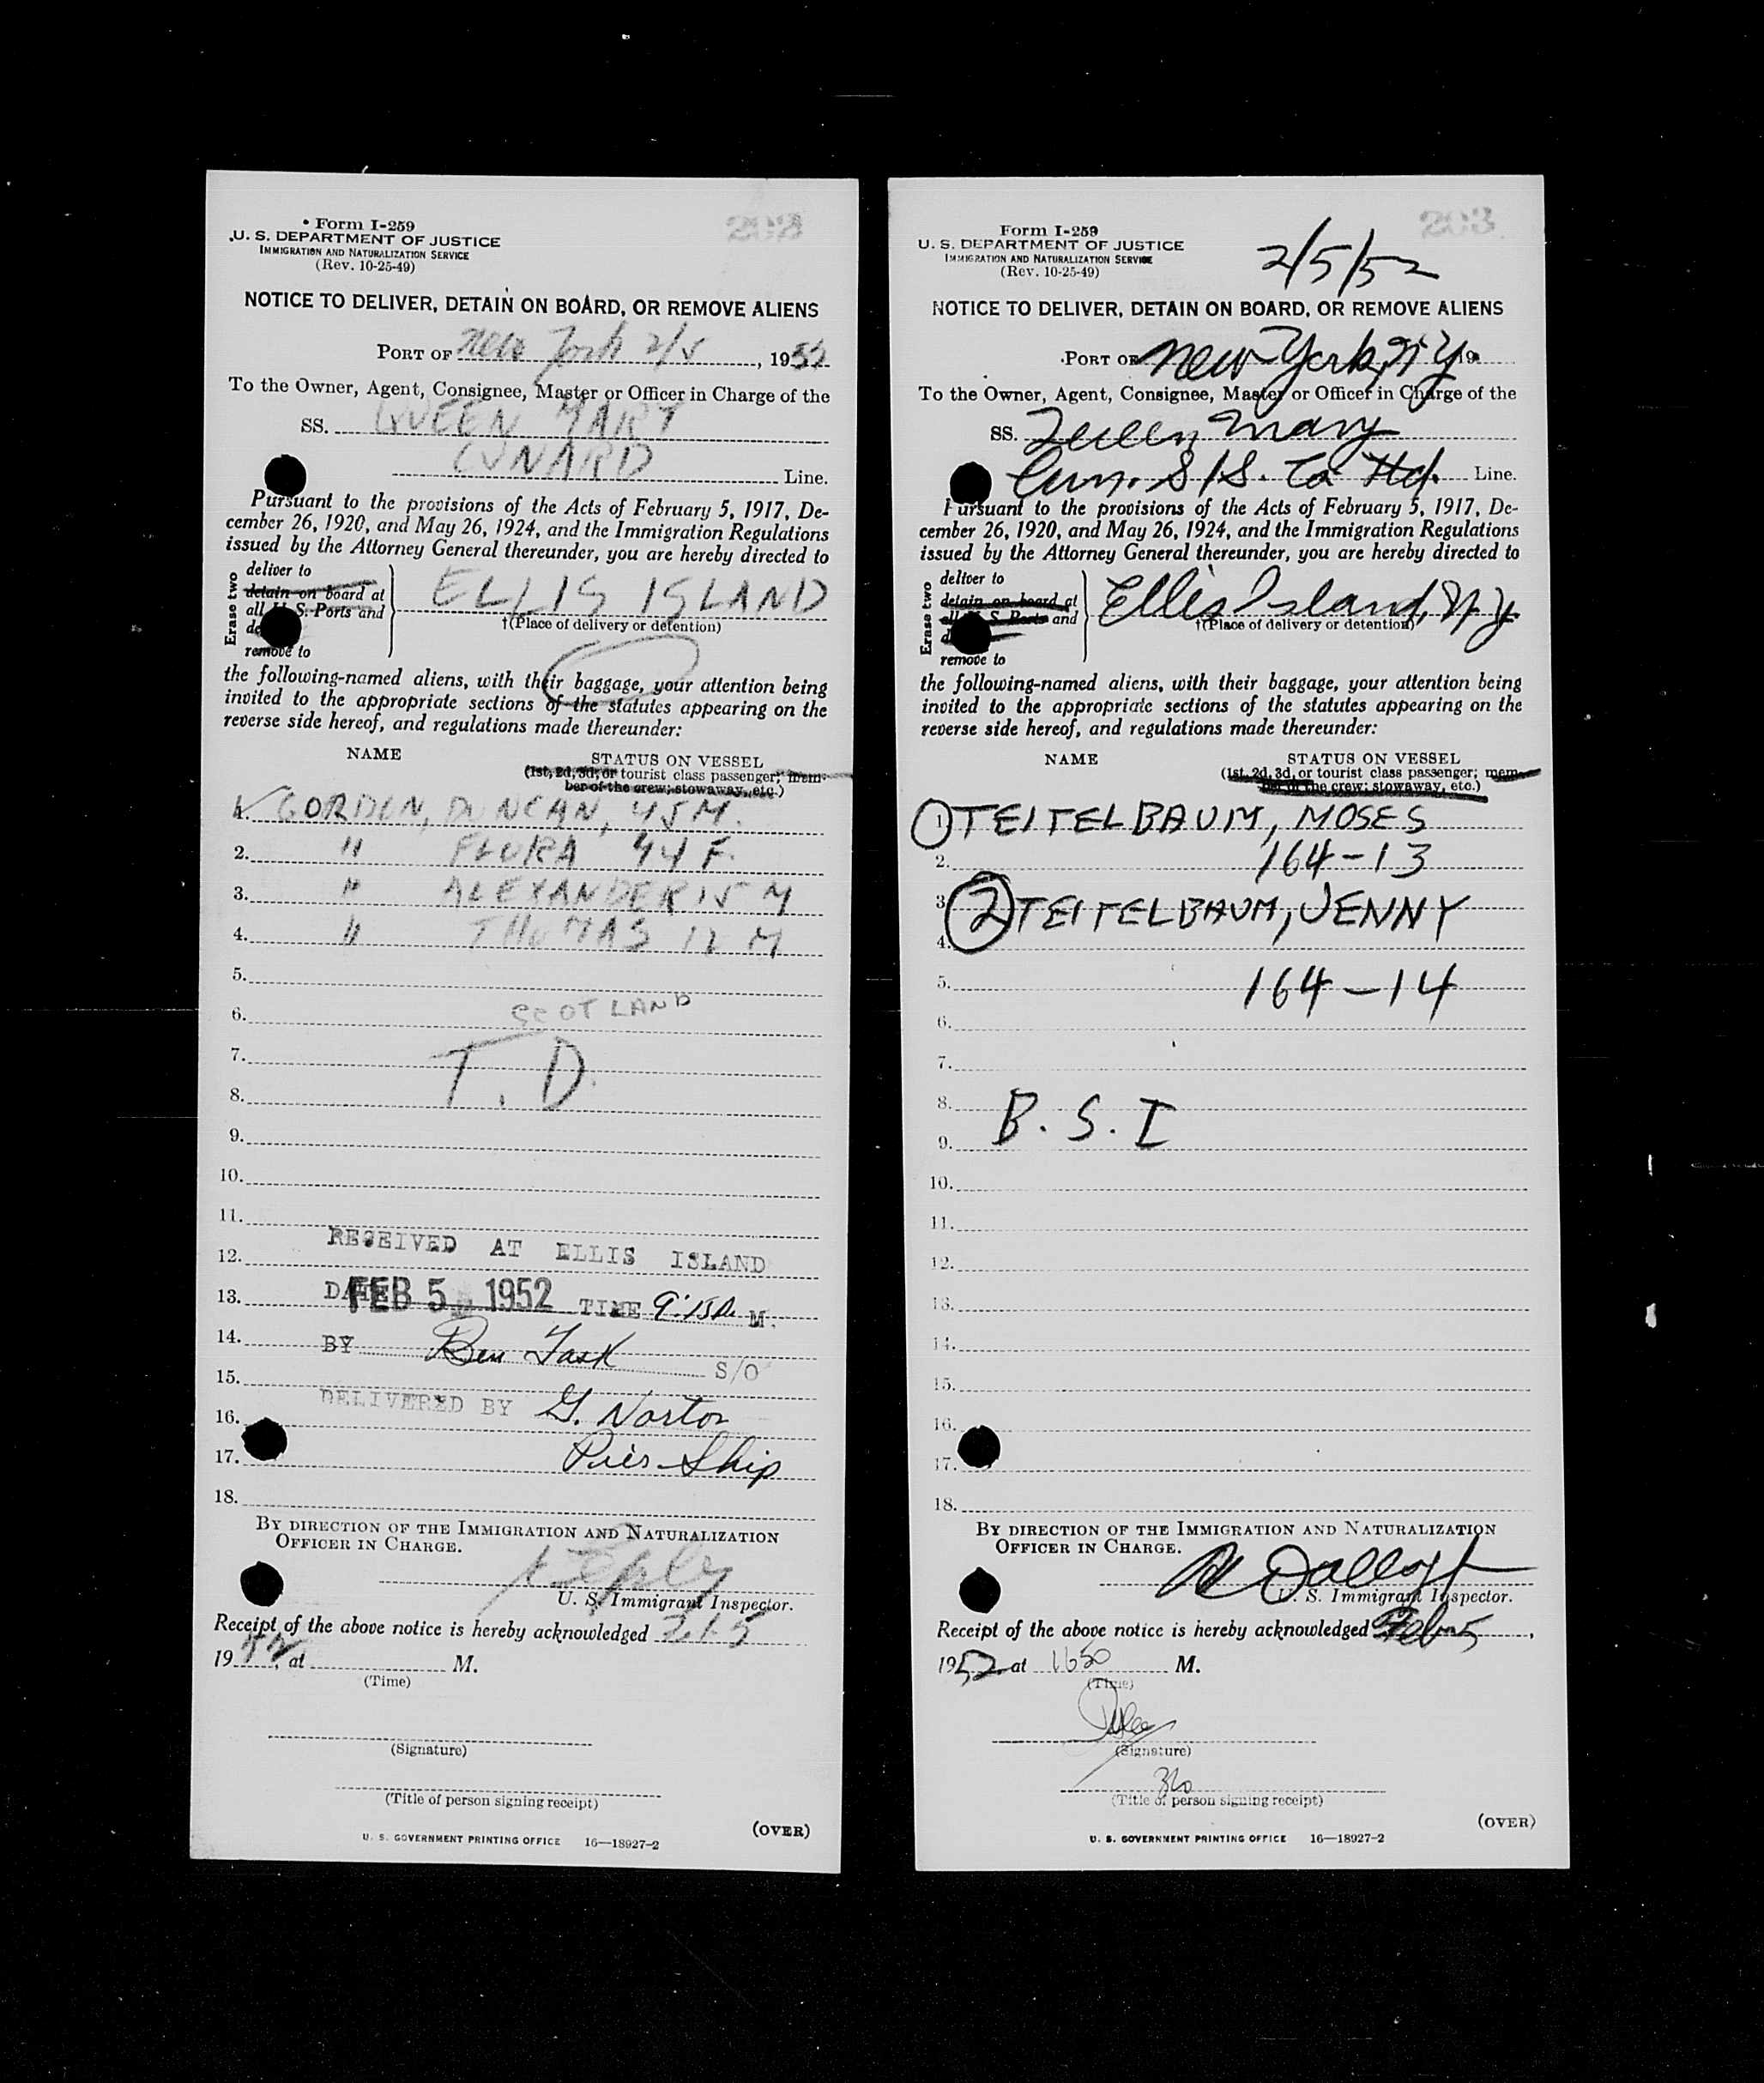 202
• Form I-259
U. S. DEPARTMENT OF JUSTICE
IMMIGRATION AND NATURALIZATION SERVICE
(Rev. 10-25-49)
NOTICE TO DELIVER, DETAIN ON BOARD, OR REMOVE ALIENS
PORT OF New York 2/5, 1952
To the Owner, Agent, Consignee, Master or Officer in Charge of the
SS. QUEEN MARY
CUNARD Line.
Pursuant to the provisions of the Acts of February 5, 1917, De-
cember 26, 1920, and May 26, 1924, and the Immigration Regulations
issued by the Attorney General thereunder, you are hereby directed to
Erase two
deliver to
detain on board at
all U. S. Ports and
remove to
ELLIS ISLAND
†(Place of delivery or detention)
the following-named aliens, with their baggage, your attention being
invited to the appropriate sections of the statutes appearing on the
reverse side hereof, and regulations made thereunder:
NAME
STATUS ON VESSEL
(1st, 2d, 3d, or tourist class passenger; mem-
ber of the crew; stowaway, etc.)
1. GORDEN, DUNCAN, 45 M.
2. " FLORA 44 F.
3. " ALEXANDER 15 M
4. " THOMAS 12 M
5.
6. SCOTLAND
7. T. D.
8.
9.
10.
11.
RECEIVED AT ELLIS ISLAND
12.
13. DATE FEB 5 1952 TIME 9:15 A. M.
14. BY Ben Task S/O
15.
DELIVERED BY G. Norton
16.
17. Pier-Ship
18.
BY DIRECTION OF THE IMMIGRATION AND NATURALIZATION
OFFICER IN CHARGE.
U. S. Immigrant Inspector.
Receipt of the above notice is hereby acknowledged 2/5
1952, at M.
(Time)
(Signature)
(Title of person signing receipt)
(OVER)
U. S. GOVERNMENT PRINTING OFFICE 16—18927-2
203
Form I-259
U. S. DEPARTMENT OF JUSTICE
IMMIGRATION AND NATURALIZATION SERVICE
(Rev. 10-25-49)
2/5/52
NOTICE TO DELIVER, DETAIN ON BOARD, OR REMOVE ALIENS
PORT OF New York, N Y 19
To the Owner, Agent, Consignee, Master or Officer in Charge of the
SS. Queen Mary
Cun. S/S. Co Ltd. Line.
Pursuant to the provisions of the Acts of February 5, 1917, De-
cember 26, 1920, and May 26, 1924, and the Immigration Regulations
issued by the Attorney General thereunder, you are hereby directed to
Erase two
deliver to
detain on board at
all U. S. Ports and
remove to
Ellis Island, N Y
†(Place of delivery or detention)
the following-named aliens, with their baggage, your attention being
invited to the appropriate sections of the statutes appearing on the
reverse side hereof, and regulations made thereunder:
NAME
STATUS ON VESSEL
(1st, 2d, 3d, or tourist class passenger; mem-
ber of the crew; stowaway, etc.)
1 TEITELBAUM, MOSES
2. 164-13
3 2 TEITELBAUM, JENNY
4.
5. 164-14
6.
7.
8. B. S. I
9.
10.
11.
12.
13.
14.
15.
16.
17.
18.
BY DIRECTION OF THE IMMIGRATION AND NATURALIZATION
OFFICER IN CHARGE.
U. S. Immigrant Inspector.
Receipt of the above notice is hereby acknowledged Feb 5,
1952 at 1650 M.
(Time)
(Signature)
(Title of person signing receipt)
(OVER)
U. S. GOVERNMENT PRINTING OFFICE 16—18927-2